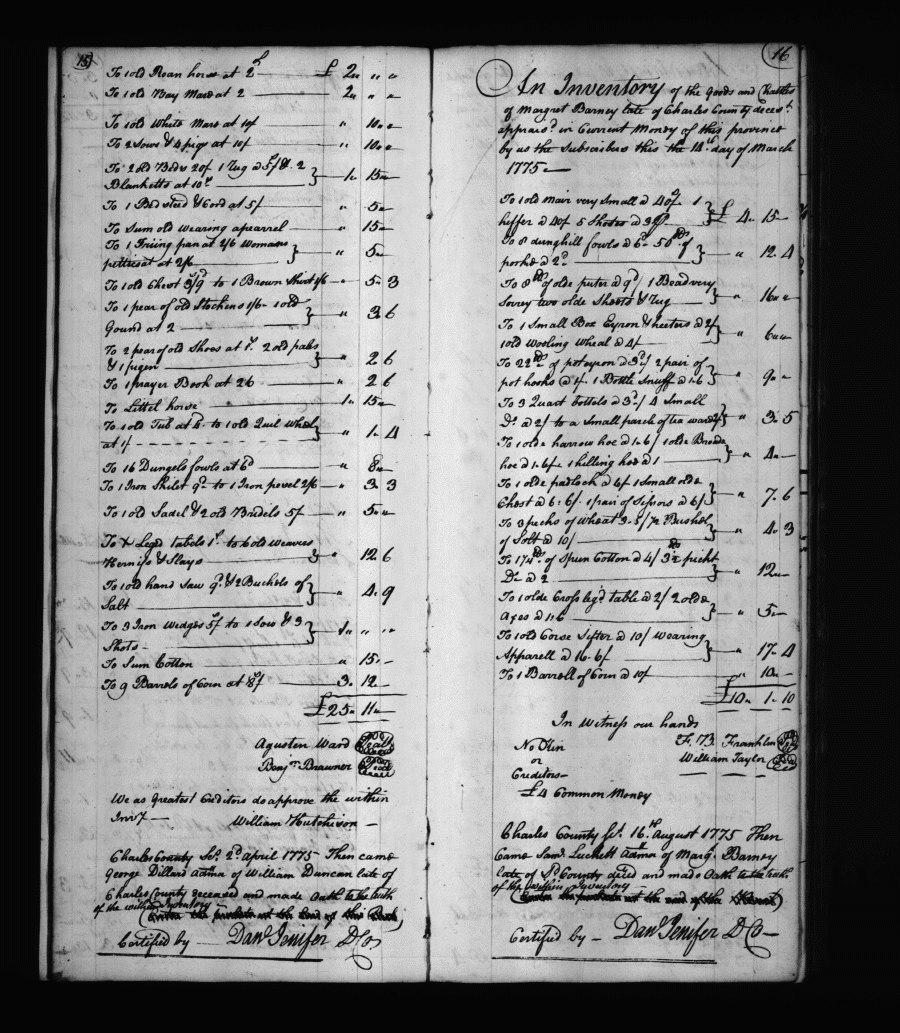 15
To 1 old Roan horse at 2£ — £ 2 " "
To 1 old Bay Mare at 2 — 2 " "
To 1 old White Mare at 10/ — " 10 "
To 2 Sows & 4 pigs at 10/ — " 10 "
To 2 old Beds 20/ 1 Rug a 5/ & 2
Blanketts at 10/ — 1 " 15 "
To 1 Bedsted & Cord at 5/ — " 5 "
To Sum old Wearing aparrel — " 15 "
To 1 Friing pan at 2/6 Womans
petticoat at 2/6 — " 5 "
To 1 old Chest 3/9 to 1 Brown Shirt 1/6 — " 5 " 3
To 1 pear of old Stockens 1/6 - 1 old
Gound at 2 — " 3 " 6
To 2 pear of old Shoes at 1/. 2 old pales
& 1 pigen — " 2 6
To 1 prayer Book at 2/6 — " 2 6
To Littel horse — 1 " 15 "
To 1 old Tub at to 1 old Quil Wheel
at 1/ - - - " 1 " 4
To 16 Dungels fowls at 6d — " 8 "
To 1 Iron Skilet 9d to 1 Iron pesel 2/6 — " 3 3
To 1 old Sadel & 2 old Bridels 5/ — " 5 "
To X Leg'd tabels 1/ to 6 old Weaves
Herniss & Slays — " 12 6
To 1 old hand Saw 9d. & 2 Buchels of
Salt — " 4 " 9
To 3 Iron Wedges 5/ to 1 Sow & 3
Shots - 1 " " "
To Sum Cotton — " 15 " -
To 9 Barrels of Corn at 8/ — 3 " 12 —
£25 " 11 "
Agusten Ward Seal
Benjn Brawner Seal
We as Greatest Creditors do approve the within
Invy — William Hutchison —
Charles County Sct. 2d April 1775 - Then came
George Dillard Admr of William Duncan late of
Charles County deceased and made Oath to the truth
of the within Inventory —
Certified by — Danl Jenifer D Co
16
An Inventory of the Goods and Chattles
of Margret Barney late of Charles County deceast
apprais'd in Current Money of this province
by us the Subscribers this the 14th day of March
1775 —
To 1 old mair very Small a 40/ 1
heffer a 40/ 5 Shotes a 3/ — £ 4 " 15 —
To 8 dunghill fowls a 6d 50lb of
porke a 2d — " 12 " 4
To 8lb of olde putor a 9d/ 1 Bead very
Sorrey two olde Sheets & Rug — " 16 " "
To 1 Small Box Eyron & heeters a 2/
1 old Wooling Wheal a 4/ — " 6 " "
To 22lb of pot eyron a 3d/ 2 pair of
pot hooks a 1/. 1 Bottle Snuff a 1.6 — " 9 " -
To 3 Quart bottels a 3d/ 4 Small
Do. a 2/ to a Small parcle of tea ware — " 3 " 5
To 1 olde harrow hoe a 1.6/ 1 olde Brode
hoe a 1.6/ 1 hilling hoe a 1 — " 4 " -
To 1 olde padlock a 6/ 1 Small olde
Chest a 6:6/. 1 pair of Sissors a 6/ — " 7 " 6
To 3 pecks of Wheat 3.5/ ½ Bushel
of Salt a 10/ — " 4 " 3
To 17¼lb. of Spun Cotton a 4/ 3½lb pickt
Do a 2 — " 12 "
To 1 olde Cross leg'd table a 2/ 2 olde
Axes a 1:6 — " 5 " -
To 1 old Corse Sifter a 10/ Wearing
Apparell a 16.6/ — " 17 " 4
To 1 Barrell of Corn a 10/ — " 10 " -
£10 " 1 " 10
In Witness our hands
No Kin Franklin Seal
or William Taylor Seal
Creditors —
£4 Common Money
Charles County Sct. 16th. August 1775 Then
Came Saml Luckett Admr of Margt Barney
late of Sd County decd and made Oath to the truth
of the within Inventory
Certified by — Danl Jenifer D Co —